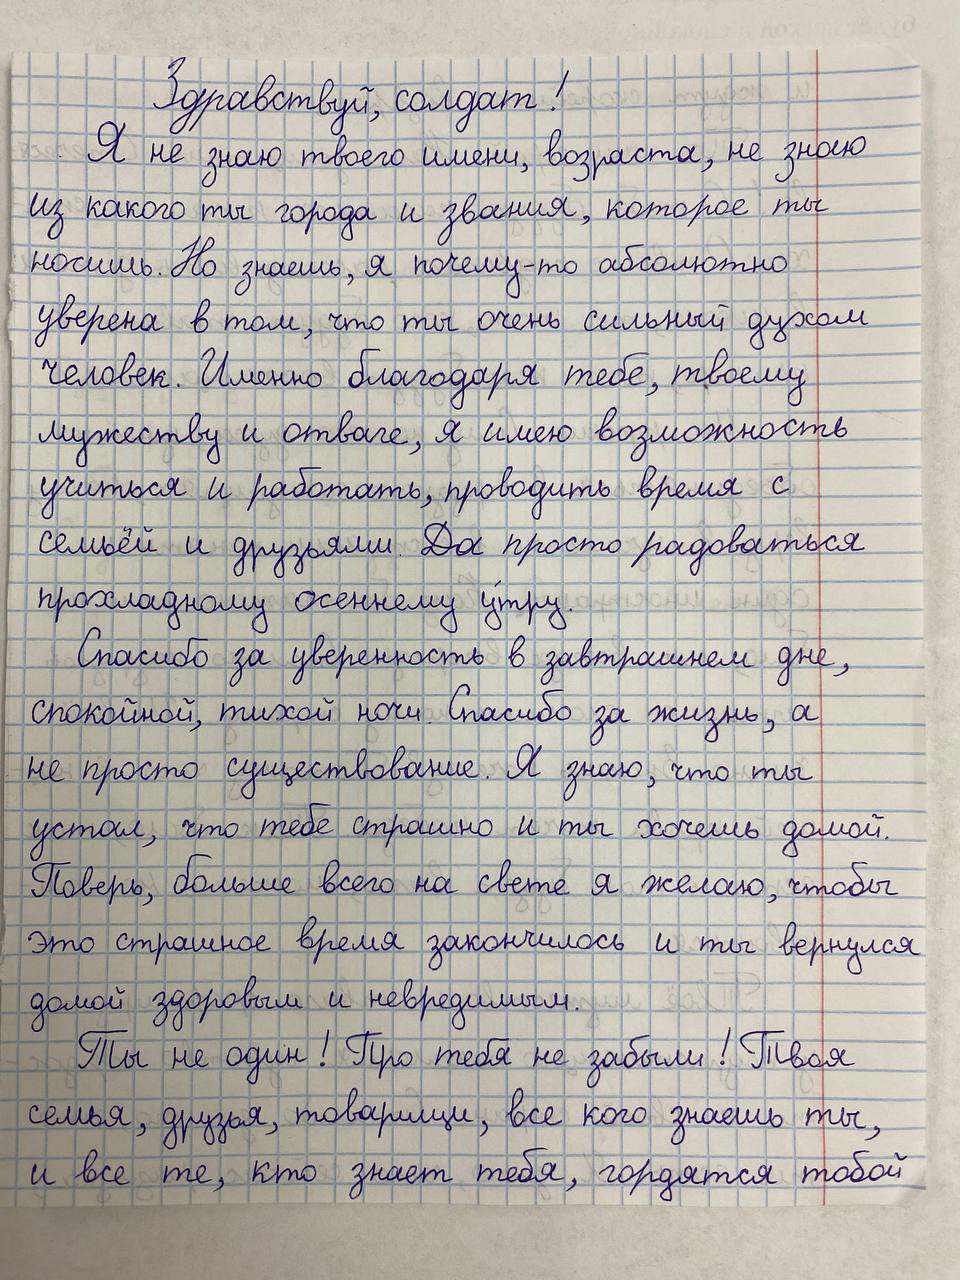 Здравствуй, солдат!
Я не знаю твоего имени, возраста, не знаю
из какого ты города и звания, которое ты
носишь. Но знаешь, я почему-то абсолютно
уверена в том, что ты очень сильный духом
человек. Именно благодаря тебе, твоему
мужеству и отваге, я имею возможность
учиться и работать, проводить время с
семьёй и друзьями. Да просто радоваться
прохладному осеннему у́тру.
Спасибо за уверенность в завтрашнем дне,
спокойной, тихой ночи. Спасибо за жизнь, а
не просто существование. Я знаю, что ты
устал, что тебе страшно и ты хочешь домой.
Поверь, больше всего на свете я желаю, чтобы
это страшное время закончилось и ты вернулся
домой здоровым и невредимым.
Ты не один! Про тебя не забыли! Твоя
семья, друзья, товарищи, все кого знаешь ты,
и все те, кто знает тебя, гордятся тобой